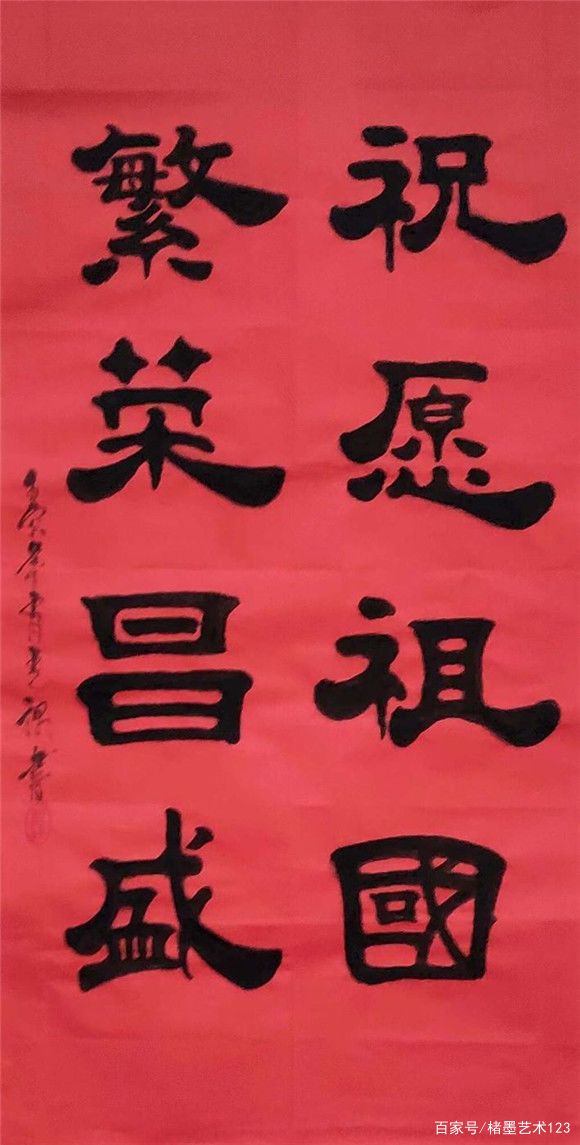 祝愿祖國
繁荣昌盛
百家号/楮墨艺术123